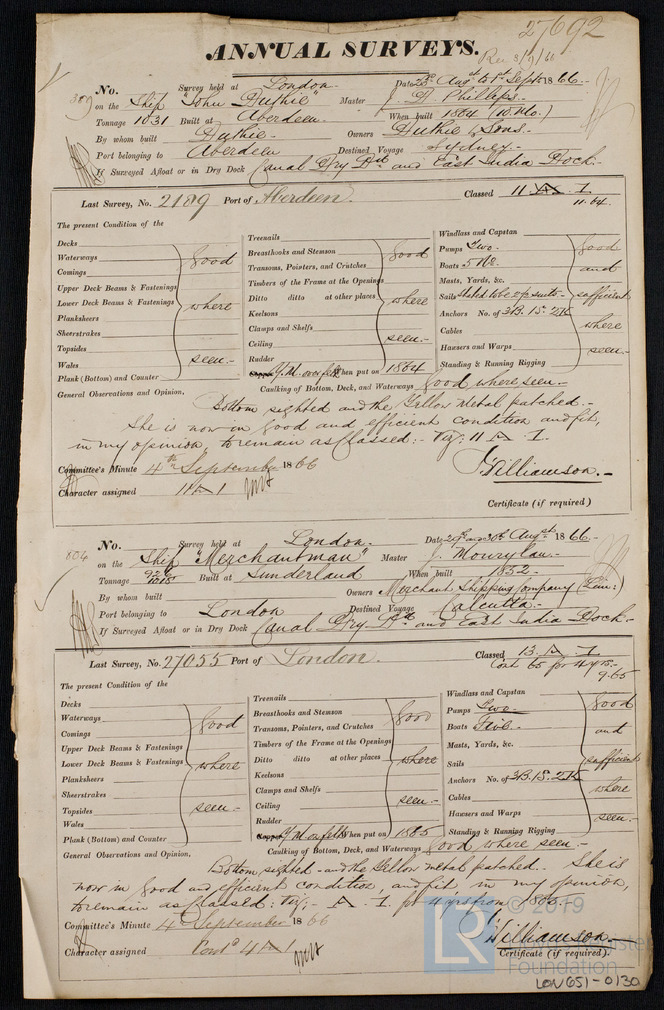 27692
Rec 3/9/66
ANNUAL SURVEYS.
No. Survey held at London Date 23rd Augst to 1st Septr 1866.
389 on the Ship "John Duthie" Master J. Phillips
Tonnage 1031 Built at Aberdeen When built 1864 (10.Mo.)
By whom built Duthie Owners Duthie Sons.
Port belonging to Aberdeen Destined Voyage Sydney
If Surveyed Afloat or in Dry Dock Canal Dry Dk and East India Dock.
Last Survey, No. 2189 Port of Aberdeen. Classed 11 A. 1
11.64.
The present Condition of the
Decks
Waterways
Comings
Upper Deck Beams & Fastenings
Lower Deck Beams & Fastenings
Planksheers
Sheerstrakes
Topsides
Wales
Plank (Bottom) and Counter
good
where
seen.-
Treenails
Breasthooks and Stemson
Transoms, Pointers, and Crutches
Timbers of the Frame at the Openings
Ditto ditto at other places
Keelsons
Clamps and Shelfs
Ceiling
Rudder
Y.M. over felt When put on 1864
good
where
seen.-
Windlass and Capstan
Pumps Two.
Boats 5 No.
Masts, Yards, &c.
Sails Stated to be 2 suits
Anchors No. of 3B. 1S. 2K
Cables
Hawsers and Warps
Standing & Running Rigging
good
and
sufficient
where
seen.-
Caulking of Bottom, Deck, and Waterways good where seen.-
General Observations and Opinion,
Bottom sighted and the Yellow Metal patched.-
She is now in good and efficient condition and fit,
in my opinion, to remain as Classed:- viz: 11 A. 1.
Committee's Minute 4th September 1866
Character assigned 11 A 1
J. Williamson.-
Certificate (if required)
No. Survey held at London. Date 29th and 30th Augst 1866.
804 on the Ship "Merchantman" Master J. Mowrylan.
Tonnage 1018 Built at Sunderland When built 1852
By whom built Owners Merchant Shipping Company (Lim:)
Port belonging to London Destined Voyage Calcutta.-
If Surveyed Afloat or in Dry Dock Canal Dry Dk and East India Dock.-
Last Survey, No. 27055 Port of London. Classed 13. A. 1
Cont 65 for 4 yrs.-
9.65
The present Condition of the
Decks
Waterways
Comings
Upper Deck Beams & Fastenings
Lower Deck Beams & Fastenings
Planksheers
Sheerstrakes
Topsides
Wales
Plank (Bottom) and Counter
good
where
seen.-
Treenails
Breasthooks and Stemson
Transoms, Pointers, and Crutches
Timbers of the Frame at the Openings
Ditto ditto at other places
Keelsons
Clamps and Shelfs
Ceiling
Rudder
Y.M. on felt When put on 1865
good
where
seen.-
Windlass and Capstan
Pumps Two
Boats Five
Masts, Yards, &c.
Sails
Anchors No. of 3B. 1S. 2K
Cables
Hawsers and Warps
Standing & Running Rigging
good
and
sufficient
where
seen.-
Caulking of Bottom, Deck, and Waterways good where seen.-
General Observations and Opinion,
Bottom sighted and the Yellow metal patched. She is
now in good and efficient condition, and fit, in my opinion,
to remain as Classed: viz:- A. 1. for 4 yrs from 1865.
Committee's Minute 4th September 1866
Character assigned Contd 4 A 1
J. Williamson.
Certificate (if required).
© 2019
Foundation
LON 651-0130